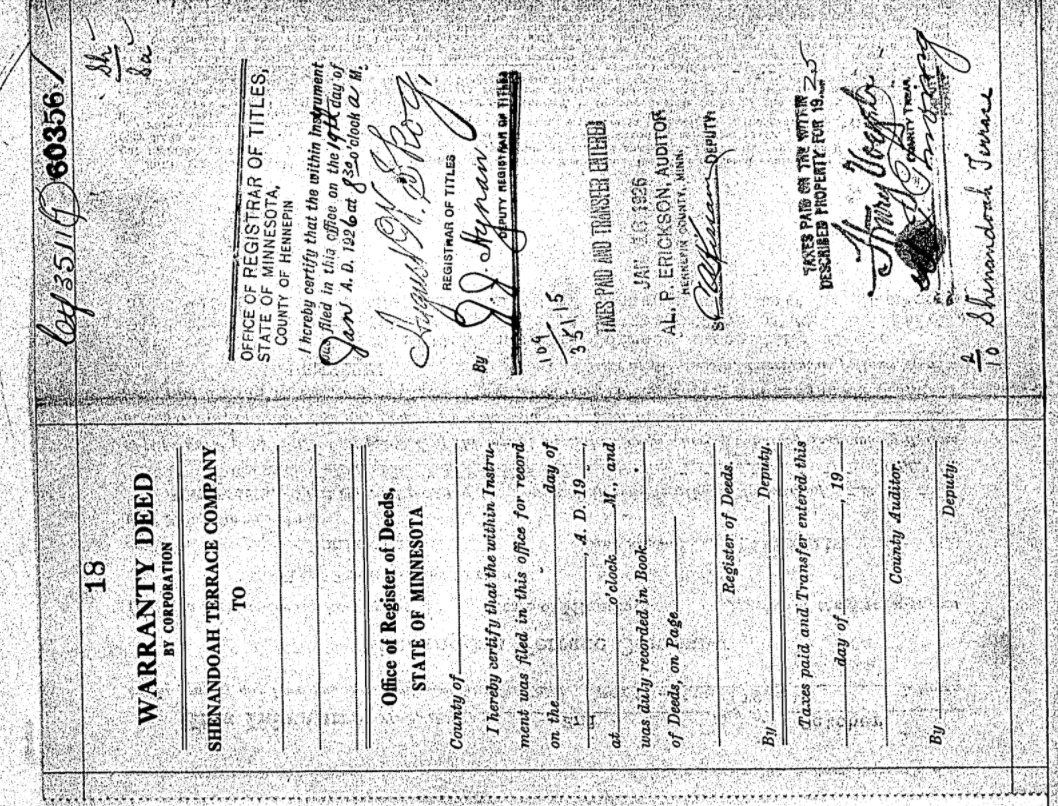 18
WARRANTY DEED
BY CORPORATION
SHENANDOAH TERRACE COMPANY
TO
Office of Register of Deeds,
STATE OF MINNESOTA
County of
I hereby certify that the within Instru-
ment was filed in this office for record
on the day of
, A. D. 19 ,
at o'clock M., and
was duly recorded in Book
of Deeds, on Page
Register of Deeds.
By Deputy.
Taxes paid and Transfer entered this
day of , 19
County Auditor.
By Deputy.
60356
OFFICE OF REGISTRAR OF TITLES,
STATE OF MINNESOTA,
COUNTY OF HENNEPIN
I hereby certify that the within Instrument
was filed in this office on the 19th day of
Jan A. D. 1926 at 830 o'clock a M.
August W. Skog,
REGISTRAR OF TITLES
By
DEPUTY REGISTRAR OF TITLES
109
35115
TAXES PAID AND TRANSFER ENTERED
JAN 1926
AL. P. ERICKSON, AUDITOR
HENNEPIN COUNTY, MINN.
DEPUTY
TAXES PAID ON THE WITHIN
DESCRIBED PROPERTY FOR 1925
Henry
COUNTY TREAS.
2/10 Shenandoah Terrace